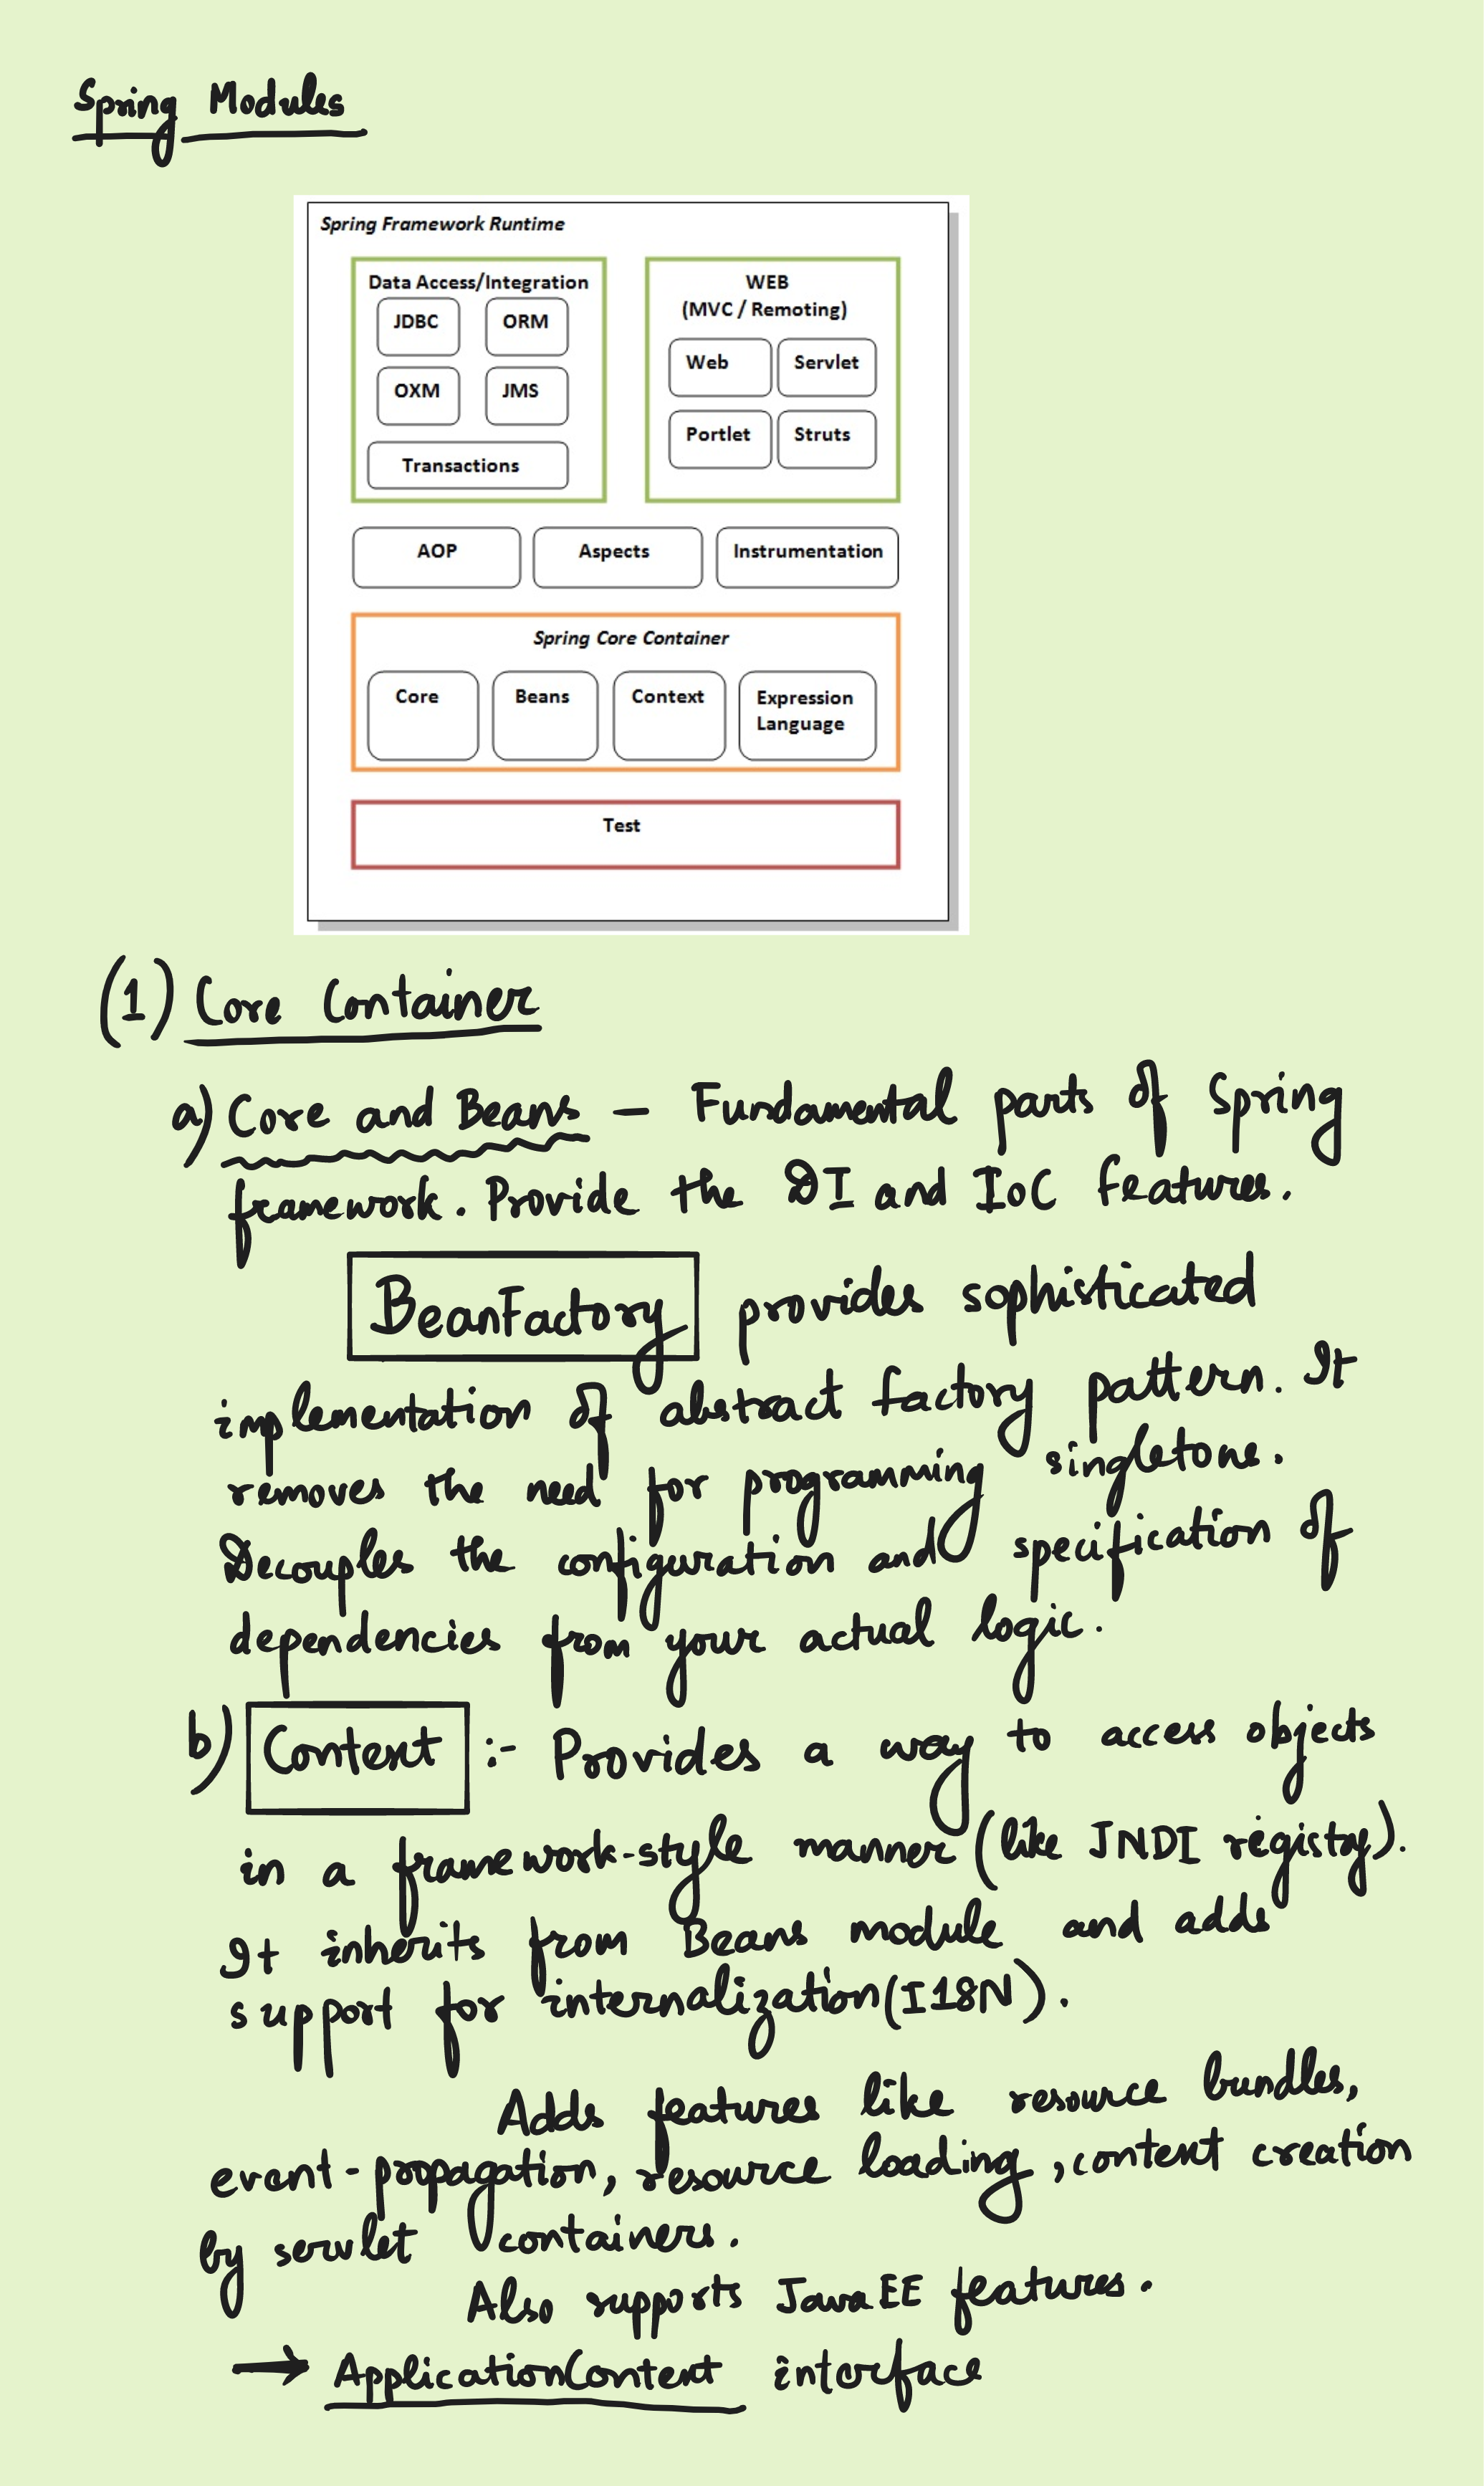 Spring Modules
Spring Framework Runtime
Data Access/Integration
JDBC ORM
OXM JMS
Transactions
WEB
(MVC / Remoting)
Web Servlet
Portlet Struts
AOP Aspects Instrumentation
Spring Core Container
Core Beans Context Expression
Language
Test
(1) Core Container
a) Core and Beans — Fundamental parts of Spring
framework. Provide the DI and IoC features.
BeanFactory provides sophisticated
implementation of abstract factory pattern. It
removes the need for programming singletons.
Decouples the configuration and specification of
dependencies from your actual logic.
b) Context :- Provides a way to access objects
in a framework-style manner (like JNDI registry).
It inherits from Beans module and adds
support for internalization (I18N).
Adds features like resource bundles,
event-propagation, resource loading, context creation
by servlet containers.
Also supports JavaEE features.
→ ApplicationContext interface